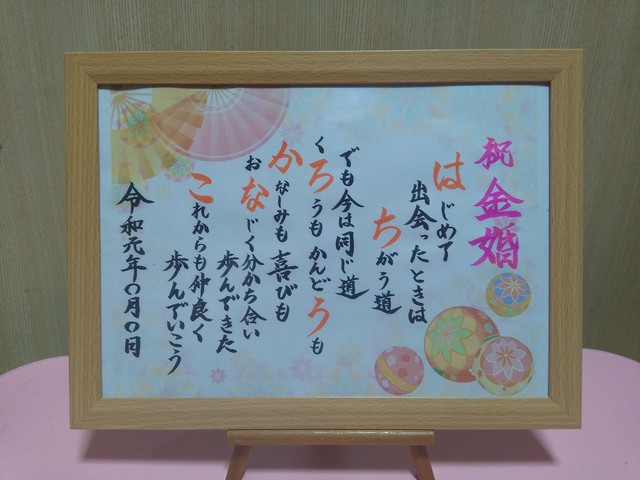 祝金婚
はじめて
出会ったときは
ちがう道
でも今は同じ道
くろうもかんどうも
かなしみも喜びも
おなじく分かち合い
歩んできた
これからも仲良く
歩んでいこう
令和元年〇月〇日